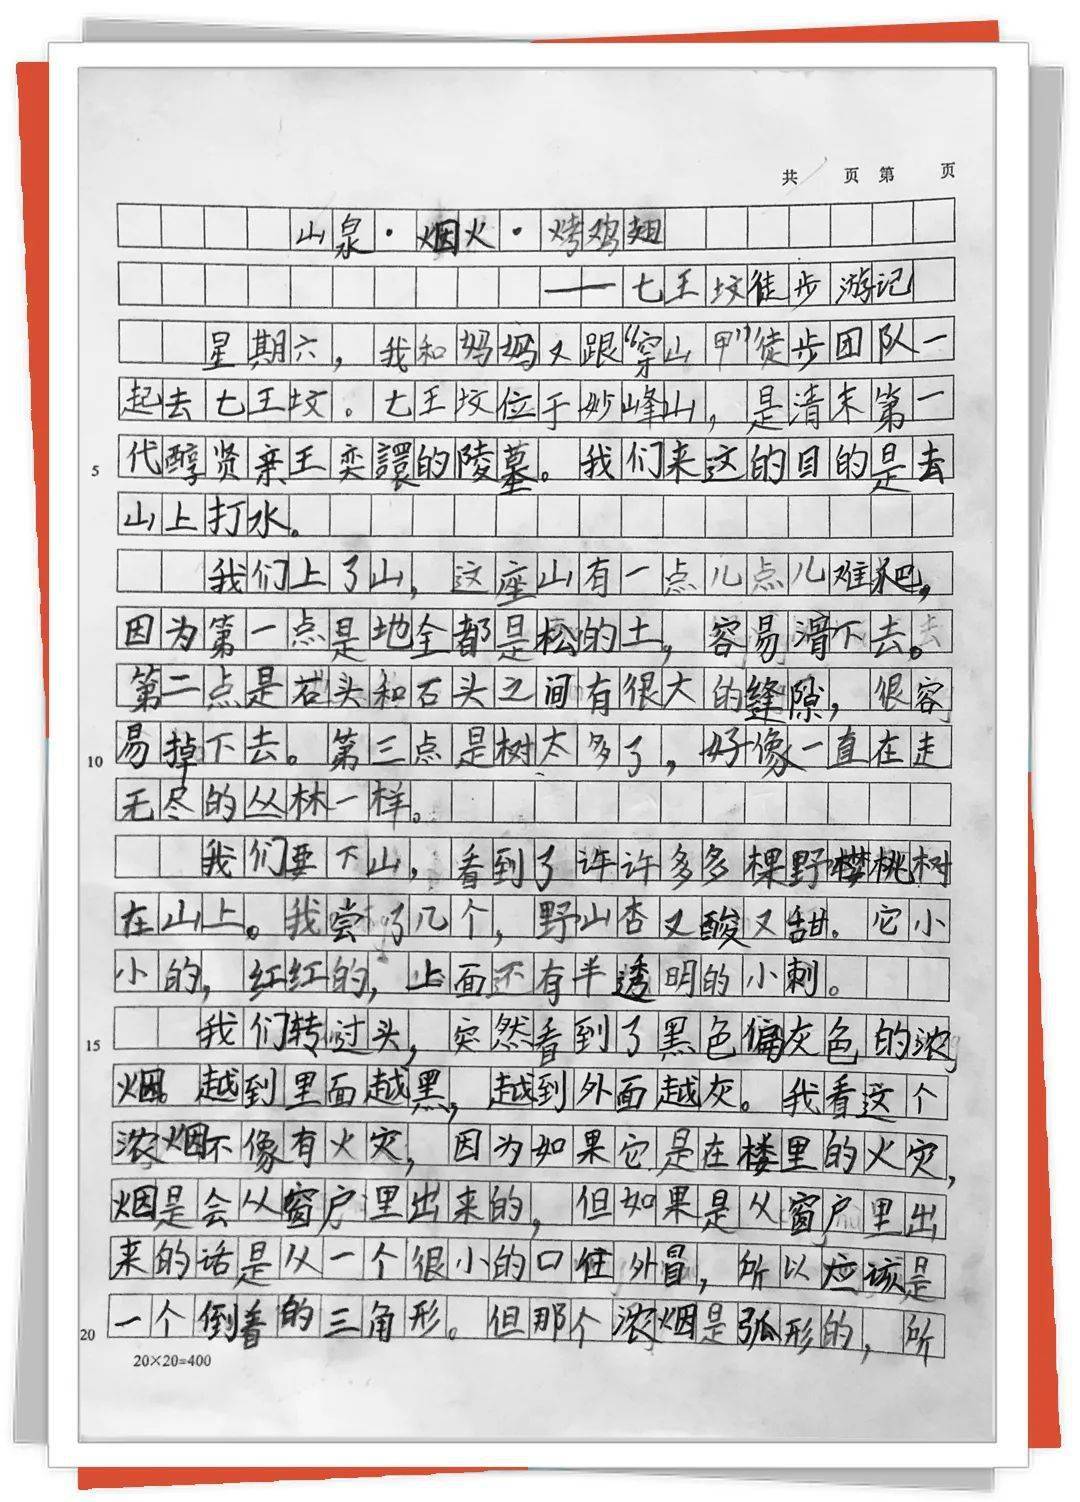 共 页 第 页
山泉·烟火·烤鸡翅
——七王坟徒步游记
星期六，我和妈妈又跟“穿山甲”徒步团队一
起去七王坟。七王坟位于妙峰山，是清末第一
5 代醇贤亲王奕譞的陵墓。我们来这的目的是去
山上打水。
我们上了山，这座山有一点儿点儿难爬，
因为第一点是地全都是松的土，容易滑下去。
第二点是石头和石头之间有很大的缝隙，很容
10 易掉下去。第三点是树太多了，好像一直在走
无尽的丛林一样。
我们要下山，看到了许许多多棵野樱桃树
在山上。我尝了几个，野山杏又酸又甜。它小
小的，红红的，上面还有半透明的小刺。
15 我们转过头，突然看到了黑色偏灰色的浓
烟 越到里面越黑，越到外面越灰。我看这个
浓烟不像有火灾，因为如果它是在楼里的火灾，
烟是会从窗户里出来的，但如果是从窗户里出
来的话是从一个很小的口往外冒，所以应该是
20 一个倒着的三角形。但那个浓烟是弧形的，所
20×20=400